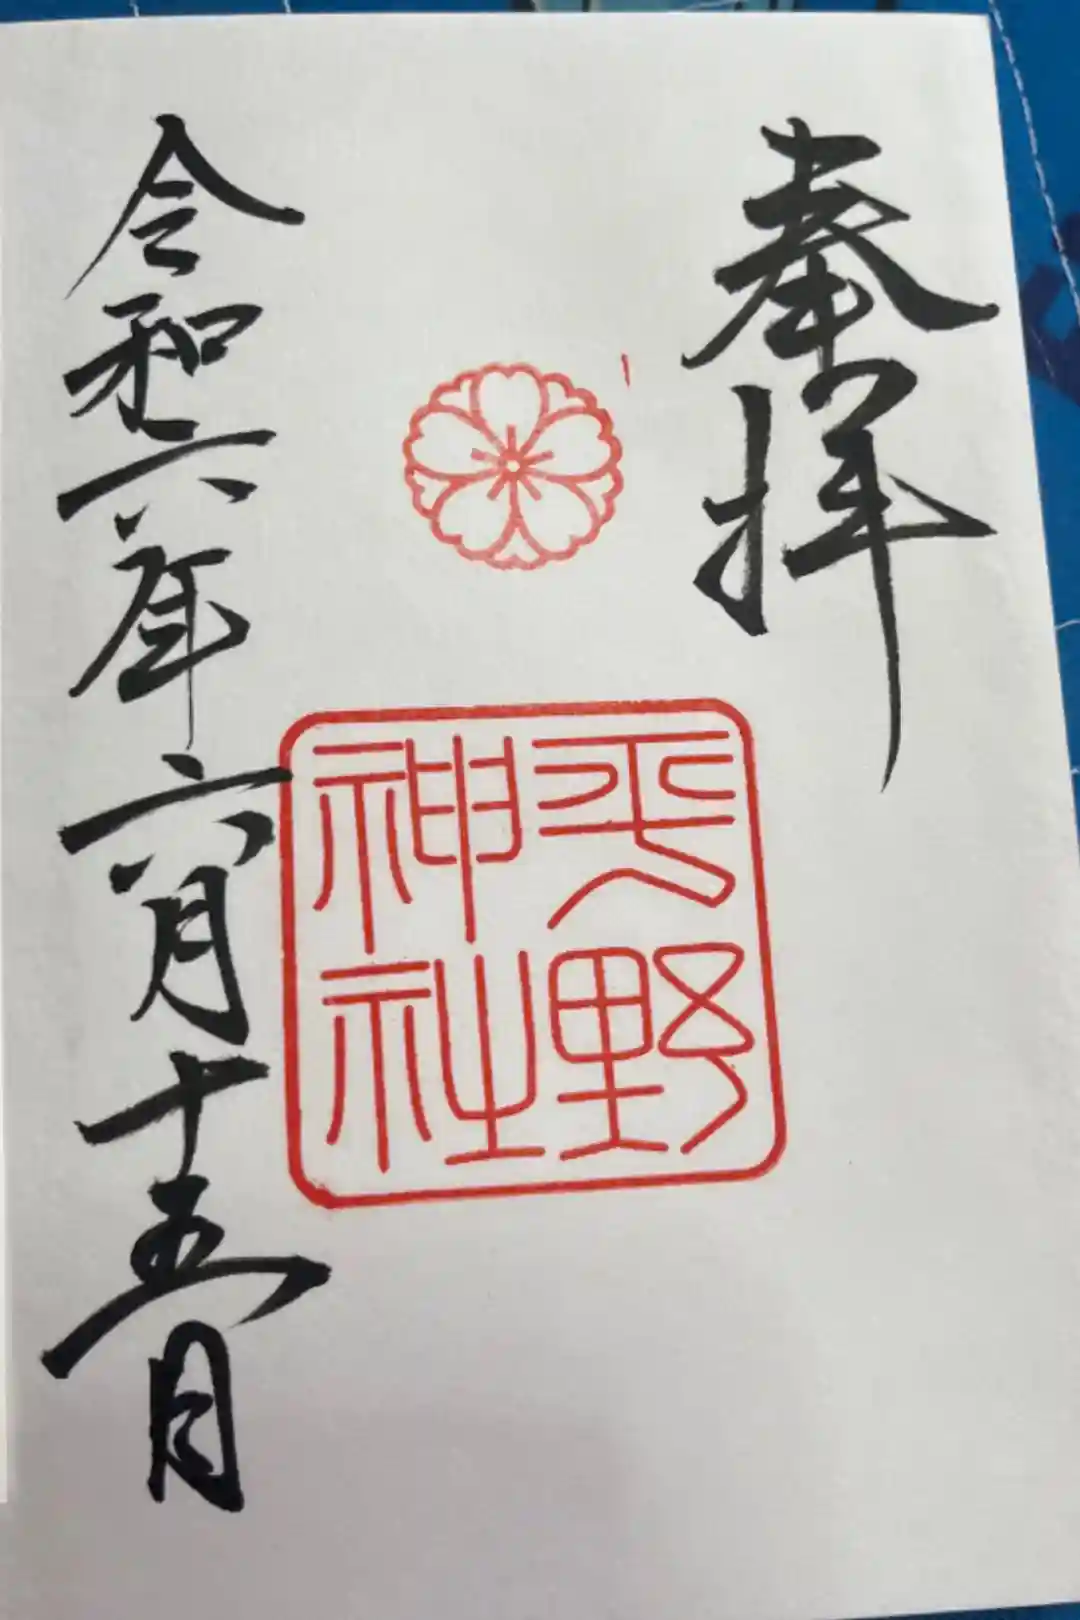 奉拝
平野
神社
令和六年六月十五日